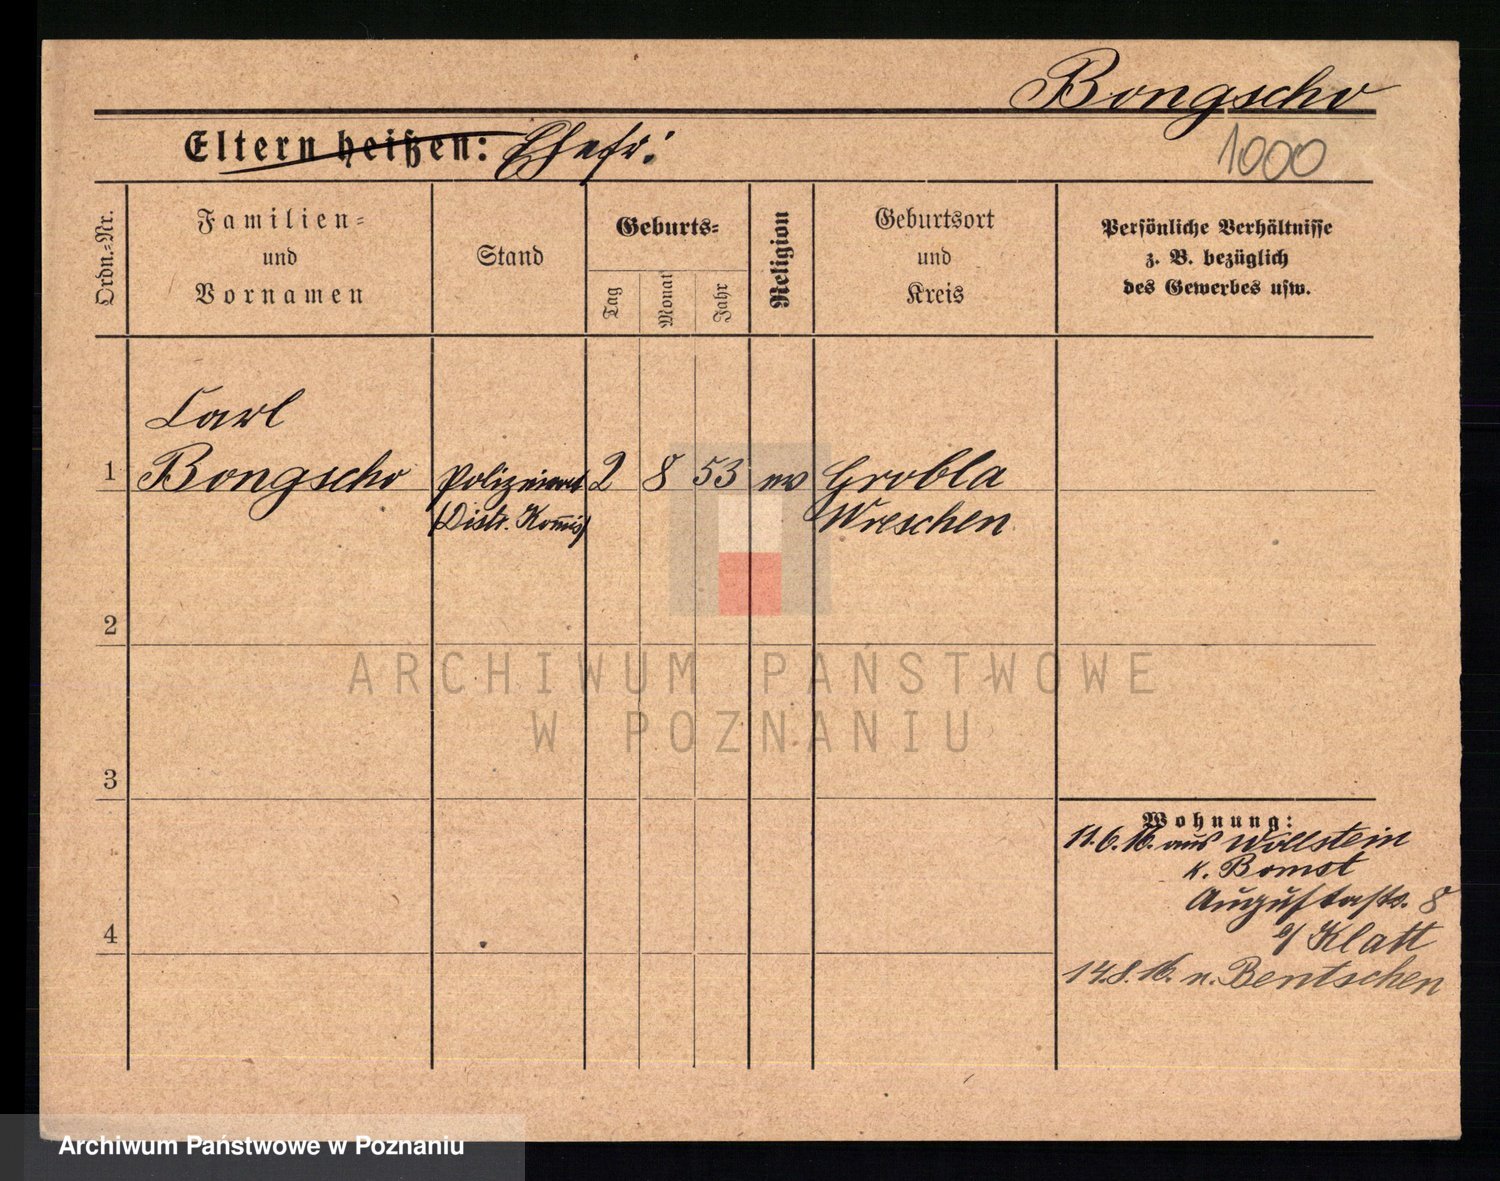 Bongscho
Eltern heißen: Ehefr:
1000
Ordn.=Nr.
Familien=
und
Vornamen
Stand
Geburts=
Tag
Monat
Jahr
Religion
Geburtsort
und
Kreis
Persönliche Verhältnisse
z. B. bezüglich
des Gewerbes usw.
Carl
1 Bongscho 2 8 53 ev Grobla
(Distr. Komis) Wreschen
2
3
4
Wohnung:
11.6.16. aus Wollstein
k. Bomst
Augustastr. 8
b/ Klatt
14.8.16. n. Bentschen
ARCHIWUM PAŃSTWOWE
W POZNANIU
Archiwum Państwowe w Poznaniu